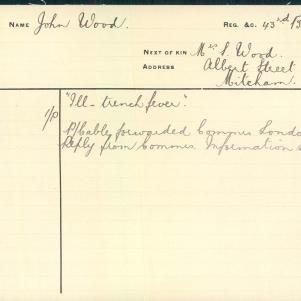 NAME John Wood. REG. &C. 43rd B
NEXT OF KIN Mrs S Wood.
ADDRESS Albert Street
Mitcham.
"Ill - trench fever".
1/P P/Cable forwarded Commis Londo
Reply from Commis. Information